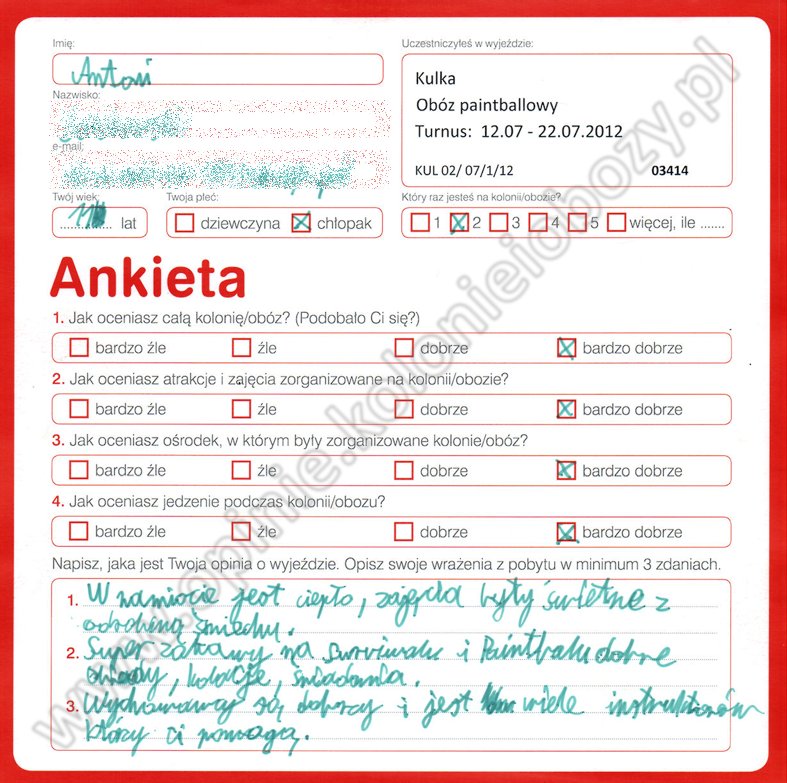 Imię:
Antoni
Uczestniczyłeś w wyjeździe:
Kulka
Obóz paintballowy
Turnus: 12.07 - 22.07.2012
KUL 02/ 07/1/12 03414
Nazwisko:
e-mail:
Twój wiek:
11 lat
Twoja płeć:
dziewczyna chłopak
Który raz jesteś na kolonii/obozie?
1 2 3 4 5 więcej, ile .......
Ankieta
1. Jak oceniasz całą kolonię/obóz? (Podobało Ci się?)
bardzo źle źle dobrze bardzo dobrze
2. Jak oceniasz atrakcje i zajęcia zorganizowane na kolonii/obozie?
bardzo źle źle dobrze bardzo dobrze
3. Jak oceniasz ośrodek, w którym były zorganizowane kolonie/obóz?
bardzo źle źle dobrze bardzo dobrze
4. Jak oceniasz jedzenie podczas kolonii/obozu?
bardzo źle źle dobrze bardzo dobrze
Napisz, jaka jest Twoja opinia o wyjeździe. Opisz swoje wrażenia z pobytu w minimum 3 zdaniach.
1. W namiocie jest ciepło, zajęcia były świetne z
odrobiną śmiechu.
2. Super zabawy na survivalu i Paintbalu dobre
obiady, kolacje, śniadania.
3. Wychowawcy są dobrzy i jest wiele instruktorów
którzy ci pomagą.
www.opinie.kolonieiobozy.pl